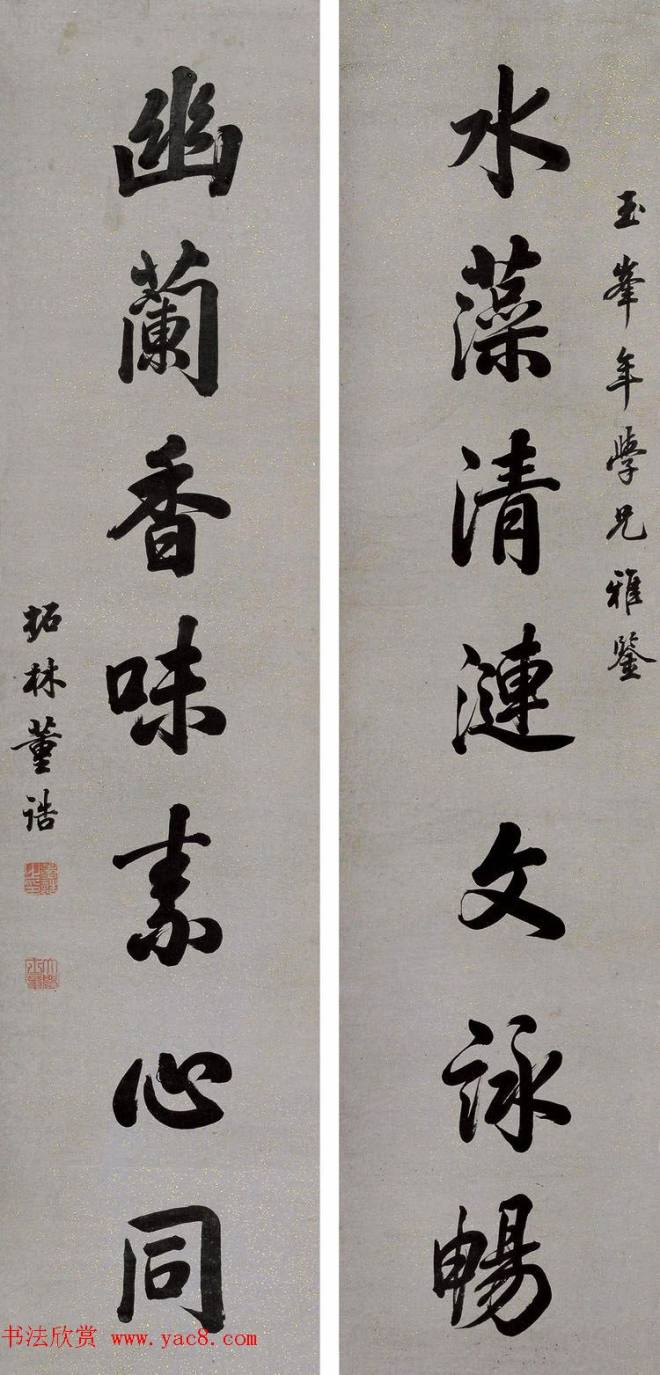 玉峯年學兄雅鑒
水藻清漣文詠暢
幽蘭香味素心同
柘林董誥
书法欣赏 www.yac8.com